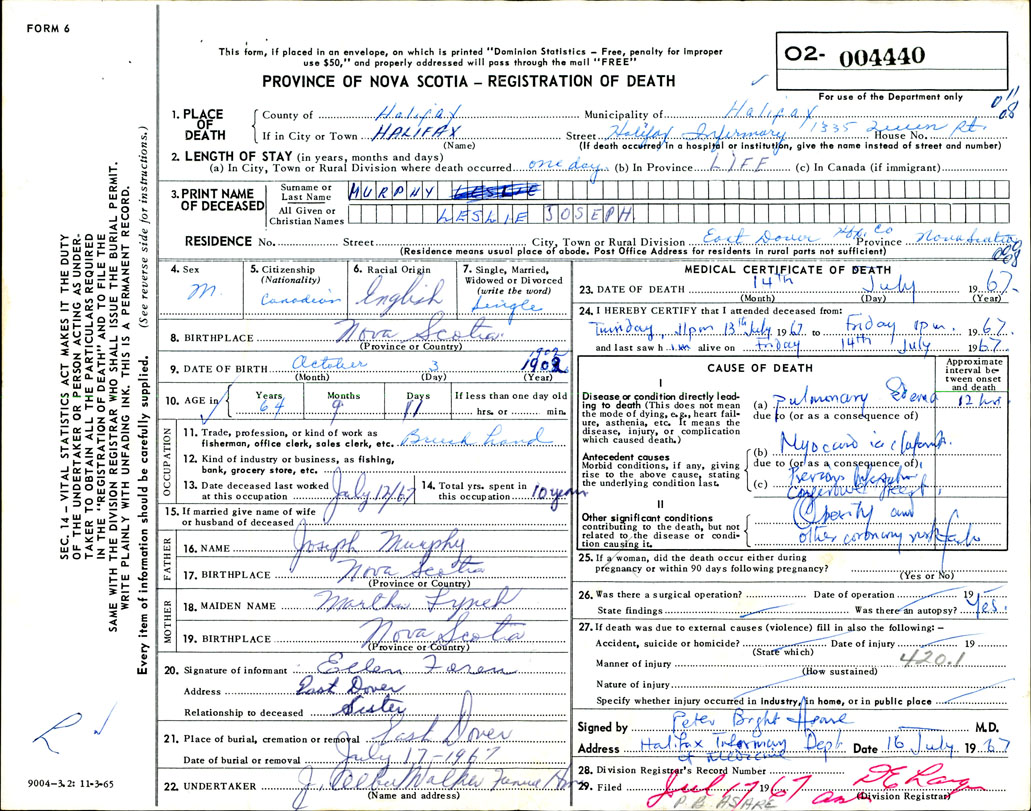 FORM 6
This form, if placed in an envelope, on which is printed "Dominion Statistics – Free, penalty for improper
use $50," and properly addressed will pass through the mail "FREE"
PROVINCE OF NOVA SCOTIA – REGISTRATION OF DEATH
O2- 004440
For use of the Department only
1. PLACE OF DEATH
County of Halifax Municipality of Halifax
If in City or Town HALIFAX Street Halifax Infirmary 1335 Queen St. House No.
(Name) (If death occurred in a hospital or institution, give the name instead of street and number)
2. LENGTH OF STAY (in years, months and days)
(a) In City, Town or Rural Division where death occurred one day (b) In Province LIFE (c) In Canada (if immigrant)
3. PRINT NAME OF DECEASED
Surname or Last Name MURPHY LESLIE
All Given or Christian Names LESLIE JOSEPH
RESIDENCE No. Street City, Town or Rural Division East Dover Hfx. Co Province Nova Scotia
(Residence means usual place of abode. Post Office Address for residents in rural parts not sufficient)
4. Sex M.
5. Citizenship (Nationality) Canadian
6. Racial Origin English
7. Single, Married, Widowed or Divorced (write the word) Single
8. BIRTHPLACE Nova Scotia
(Province or Country)
9. DATE OF BIRTH October 3 1902 1902
(Month) (Day) (Year)
10. AGE in Years 64 Months 9 Days 11 If less than one day old hrs. or min.
OCCUPATION
11. Trade, profession, or kind of work as
fisherman, office clerk, sales clerk, etc. Brush hand
12. Kind of industry or business, as fishing,
bank, grocery store, etc.
13. Date deceased last worked at this occupation July 12/67 14. Total yrs. spent in this occupation 10 years
15. If married give name of wife
or husband of deceased
FATHER
16. NAME Joseph Murphy
17. BIRTHPLACE Nova Scotia
(Province or Country)
MOTHER
18. MAIDEN NAME Martha Lynch
19. BIRTHPLACE Nova Scotia
(Province or Country)
20. Signature of informant Ellen
Address East Dover
Relationship to deceased Sister
21. Place of burial, cremation or removal East Dover
Date of burial or removal July 17-1967
22. UNDERTAKER J. Walker Funeral
(Name and address)
MEDICAL CERTIFICATE OF DEATH
23. DATE OF DEATH 14th July 1967.
(Month) (Day) (Year)
24. I HEREBY CERTIFY that I attended deceased from:
11pm 13th July 1967 to Friday 11pm. 1967.
and last saw h im alive on Friday 14th July 1967.
CAUSE OF DEATH
Approximate interval between onset and death
I
Disease or condition directly leading to death (This does not mean the mode of dying, e.g., heart failure, asthenia, etc. It means the disease, injury, or complication which caused death.)
(a) pulmonary Edema 12 hrs
due to (or as a consequence of)
Antecedent causes
Morbid conditions, if any, giving rise to the above cause, stating the underlying condition last.
(b) Myocardial infarct.
due to (or as a consequence of)
(c) Previous
II
Other significant conditions
contributing to the death, but not related to the disease or condition causing it.
Obesity and
other coronary risk
25. If a woman, did the death occur either during
pregnancy or within 90 days following pregnancy?
(Yes or No)
26. Was there a surgical operation? Date of operation 19
State findings Was there an autopsy? Yes.
27. If death was due to external causes (violence) fill in also the following: –
Accident, suicide or homicide? Date of injury 19
(State which)
420.1
Manner of injury
(How sustained)
Nature of injury
Specify whether injury occurred in industry, in home, or in public place
Signed by Peter Bright M.D.
Address Halifax Infirmary Dept of Medicine Date 16 July 1967
28. Division Registrar's Record Number
29. Filed Jul 17 1967
(Division Registrar)
P.B. HSARE
SEC. 14 – VITAL STATISTICS ACT MAKES IT THE DUTY
OF THE UNDERTAKER OR PERSON ACTING AS UNDER-
TAKER TO OBTAIN ALL THE PARTICULARS REQUIRED
IN THE "REGISTRATION OF DEATH" AND TO FILE THE
SAME WITH THE DIVISION REGISTRAR WHO SHALL ISSUE THE BURIAL PERMIT.
WRITE PLAINLY WITH UNFADING INK. THIS IS A PERMANENT RECORD.
Every item of information should be carefully supplied. (See reverse side for instructions.)
9004-3.2: 11-3-65